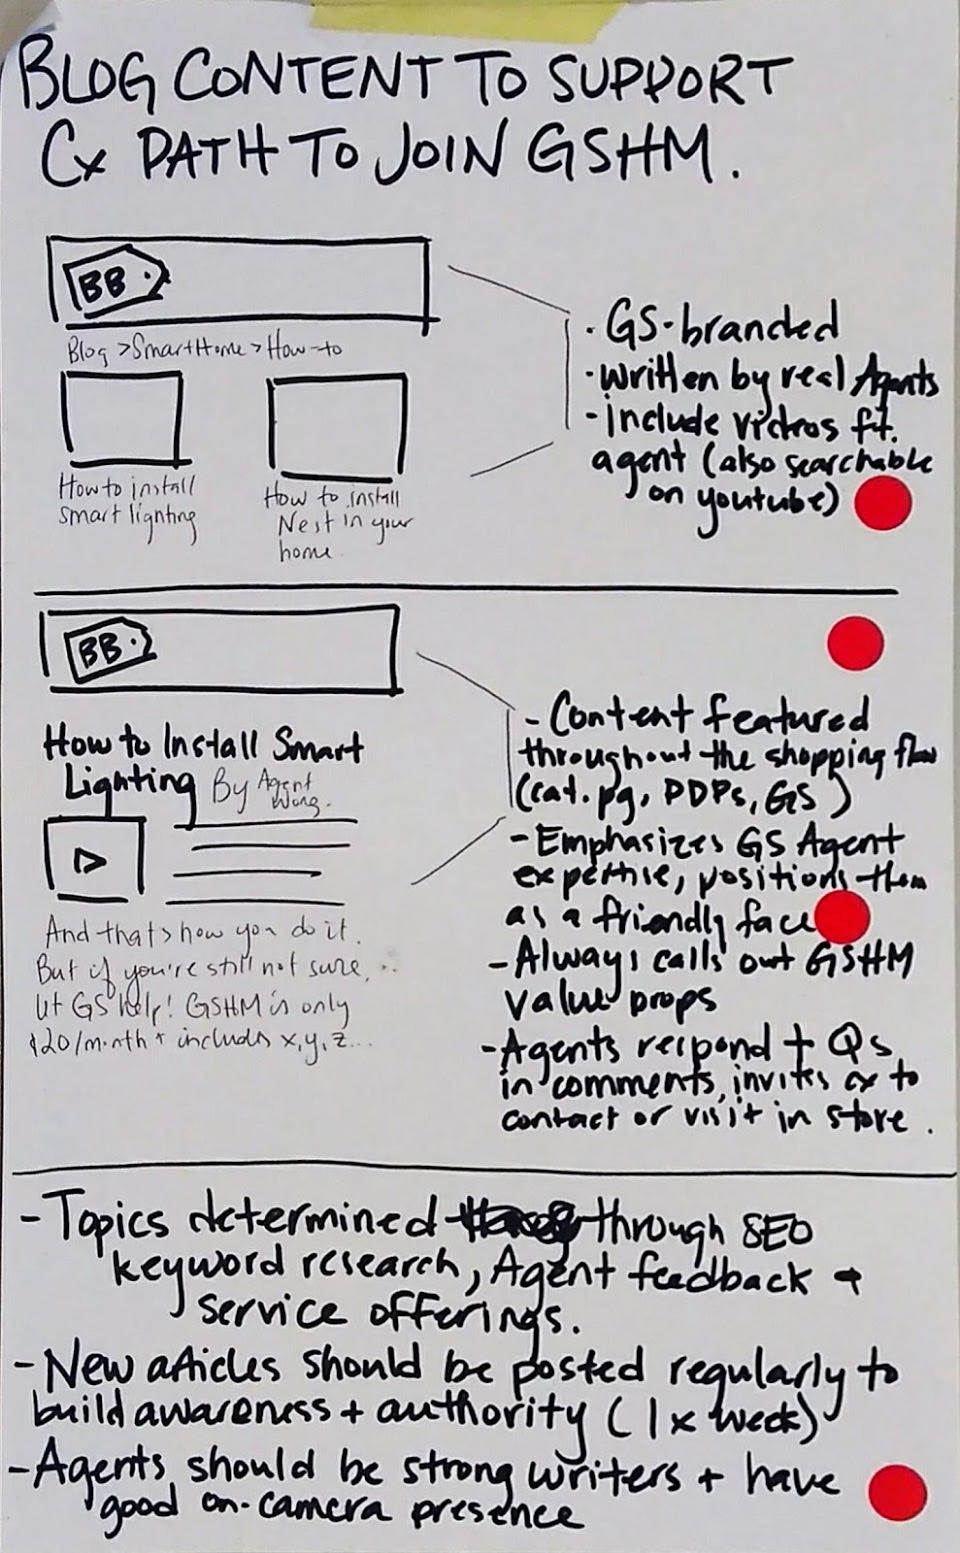 BLOG CONTENT TO SUPPORT
Cx PATH TO JOIN GSHM.
BB
Blog > Smart Home > How-to
How to install
smart lighting
How to install
Nest in your
home.
· GS-branded
· written by real Agents
- include videos ft.
agent (also searchable
on youtube)
BB
How to Install Smart
Lighting By Agent
Wong.
And that's how you do it.
But if you're still not sure,...
let GS help! GSHM is only
$20/month + includes x,y,z...
- Content featured
throughout the shopping flow
(cat. pg, PDPs, GS)
- Emphasizes GS Agent
expertise, positions them
as a friendly face
- Always calls out GSHM
value props
- Agents respond + Qs
in comments, invites cx to
contact or visit in store.
- Topics determined through SEO
keyword research, Agent feedback +
service offerings.
- New articles should be posted regularly to
build awareness + authority (1x week)
- Agents should be strong writers + have
good on-camera presence